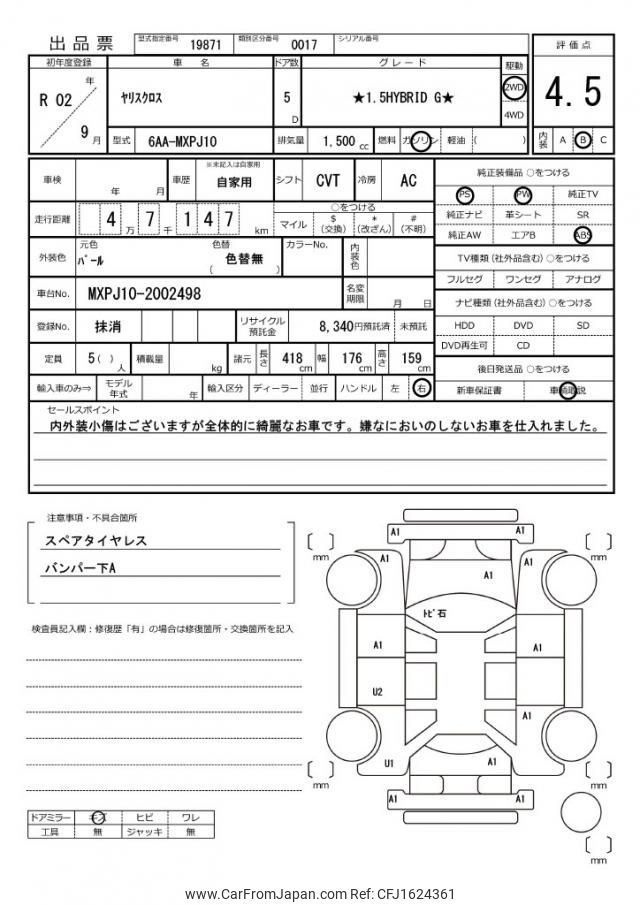 出品票
型式指定番号 19871 類別区分番号 0017 シリアル番号
評価点
4.5
内装 A B C
初年度登録 車名 ドア数 グレード 駆動
R 02 年 9 月
ヤリスクロス
5 D
★1.5HYBRID G★
2WD
4WD
型式 6AA-MXPJ10 排気量 1,500 cc 燃料 ガソリン 軽油 ( )
車検 年 月 車歴 ※未記入は自家用 自家用 シフト CVT 冷房 AC
走行距離 4 万 7 千 1 4 7 km
○をつける
マイル $(交換) *(改ざん) #(不明)
外装色 元色 パール 色替 ( 色替無 ) カラーNo. 内装色
車台No. MXPJ10-2002498 名変期限 月 日
登録No. 抹消 リサイクル預託金 8,340円預託済 未預託
定員 5 ( ) 人 積載量 kg 諸元 長さ 418 cm 幅 176 cm 高さ 159 cm
輸入車のみ⇒ モデル年式 年 輸入区分 ディーラー ・ 並行 ハンドル 左 右
純正装備品 ○をつける
PS PW 純正TV
純正ナビ 革シート SR
純正AW エアB ABS
TV種類 (社外品含む) ○をつける
フルセグ ワンセグ アナログ
ナビ種類 (社外品含む) ○をつける
HDD DVD SD
DVD再生可 CD
後日発送品 ○をつける
新車保証書 車輌取説
セールスポイント
内外装小傷はございますが全体的に綺麗なお車です。嫌なにおいのしないお車を仕入れました。
注意事項・不具合箇所
スペアタイヤレス
バンパー下A
検査員記入欄：修復歴「有」の場合は修復箇所・交換箇所を記入
ドアミラー キズ ヒビ ワレ
工具 無 ジャッキ 無
A1 A1
mm mm
A1 A1 A1
トビ石
A1 A1
U2
A1 A1
U1 A1
mm mm
A1 A1
mm
www.CarFromJapan.com Ref: CFJ1624361